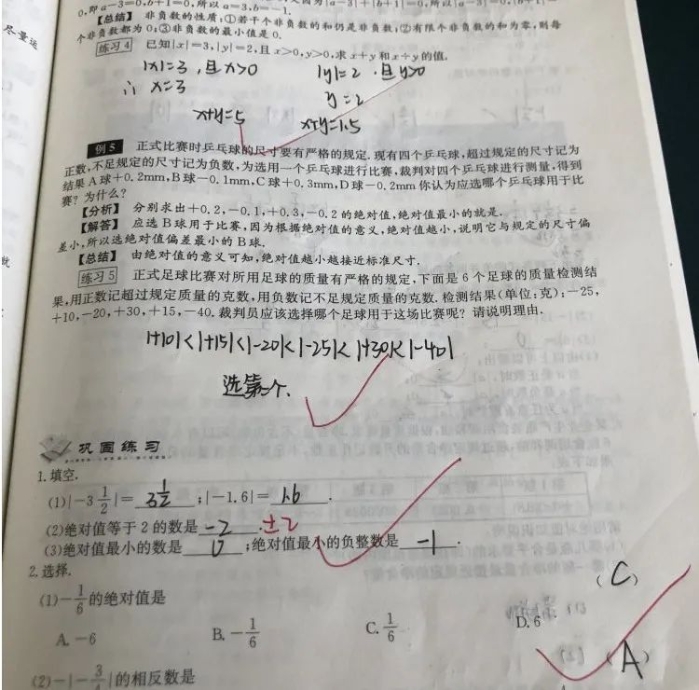 0,即a-3=0,b+1=0,所以a=3,b=-1.
【总结】 非负数的性质:①若干个非负数的和仍是非负数;②有限个非负数的和为零,则每
个非负数都为0;③非负数的最小值是0.
尽量运
练习4 已知|x|=3,|y|=2,且x>0,y>0,求x+y和x÷y的值.
|x|=3,且x>0 |y|=2.且y>0
∴ x=3 y=2
x+y=5 x÷y=1.5
例5 正式比赛时乒乓球的尺寸要有严格的规定.现有四个乒乓球,超过规定的尺寸记为
正数,不足规定的尺寸记为负数,为选用一个乒乓球进行比赛,裁判对四个乒乓球进行测量,得到
结果A球+0.2mm,B球-0.1mm,C球+0.3mm,D球-0.2mm 你认为应选哪个乒乓球用于比
赛?为什么?
【分析】 分别求出+0.2,-0.1,+0.3,-0.2的绝对值,绝对值最小的就是.
【解答】 应选B球用于比赛,因为根据绝对值的意义,绝对值越小,说明它与规定的尺寸偏
差小,所以选绝对值偏差最小的B球.
【总结】 由绝对值的意义可知,绝对值越小越接近标准尺寸.
练习5 正式足球比赛对所用足球的质量有严格的规定,下面是6个足球的质量检测结
果,用正数记超过规定质量的克数,用负数记不足规定质量的克数.检测结果(单位:克):-25,
+10,-20,+30,+15,-40.裁判员应该选择哪个足球用于这场比赛呢?请说明理由.
|+10|<|+15|<|-20|<|-25|<|+30|<|-40|
选第二个.
巩固练习
1.填空.
(1)|-3 1/2|= 3 1/2 ;|-1.6|= 1.6 .
(2)绝对值等于2的数是 -2 . ±2
(3)绝对值最小的数是 0 ;绝对值最小的负整数是 -1 .
2.选择.
(1)-1/6的绝对值是 (C)
A.-6 B.-1/6 C.1/6 D.6
(2)-|-3/4|的相反数是 (A)